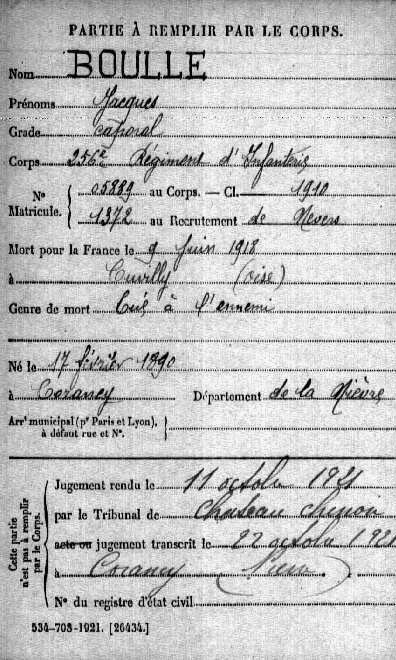 PARTIE À REMPLIR PAR LE CORPS.
Nom BOULLE
Prénoms Jacques
Grade caporal
Corps 256e Régiment d'Infanterie
N° Matricule. { 05889 au Corps. — Cl. 1910
1372 au Recrutement de Nevers
Mort pour la France le 9 Juin 1918
à Cuvilly (oise)
Genre de mort Tué à l'ennemi
Né le 17 février 1890
à Corancy Département de la Nièvre
Arrt municipal (pr Paris et Lyon), }
à défaut rue et N°.
Cette partie n'est pas à remplir par le Corps.
Jugement rendu le 11 octobre 1921
par le Tribunal de Chateau chinon
acte ou jugement transcrit le 22 octobre 1921
à Corancy
N° du registre d'état civil
534-708-1921. [26434.]